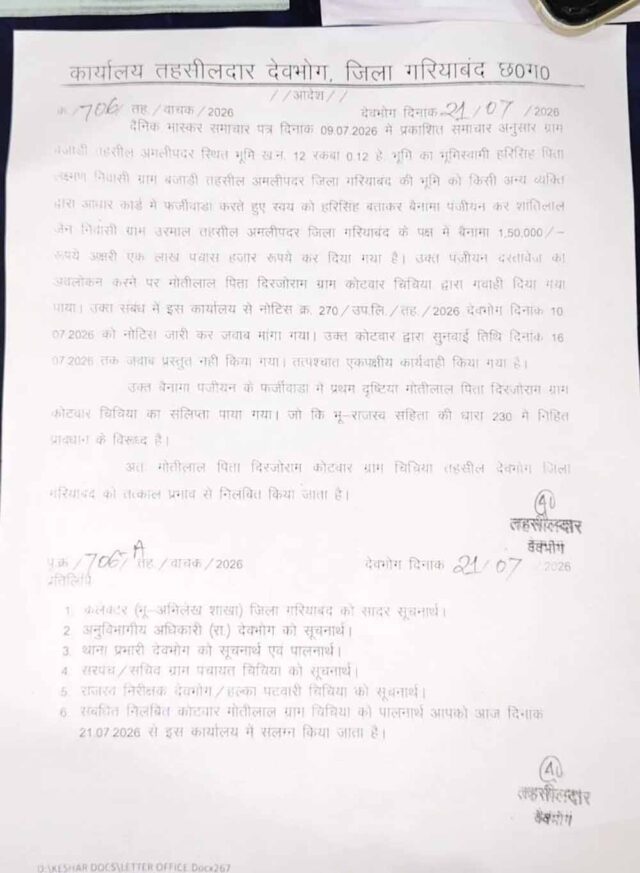 कार्यालय तहसीलदार देवभोग, जिला गरियाबंद छ0ग0
//आदेश//
क्र./706/तह./वाचक/2026 देवभोग दिनांक 21/07/2026
दैनिक भास्कर समाचार पत्र दिनांक 09.07.2026 मे प्रकाशित समाचार अनुसार ग्राम
बजाड़ी तहसील अमलीपदर स्थित भूमि ख.न. 12 रकबा 0.12 हे. भूमि का भूमिस्वामी हरिसिंह पिता
लक्ष्मण निवासी ग्राम बजाड़ी तहसील अमलीपदर जिला गरियाबंद की भूमि को किसी अन्य व्यक्ति
द्वारा आधार कार्ड मे फर्जीवाड़ा करते हुए स्वयं को हरिसिंह बताकर बैनामा पंजीयन कर शांतिलाल
जैन निवासी ग्राम उरमाल तहसील अमलीपदर जिला गरियाबंद के पक्ष में बैनामा 1,50,000/-
रूपये अक्षरी एक लाख पचास हजार रूपये कर दिया गया है। उक्त पंजीयन दस्तावेज का
अवलोकन करने पर मोतीलाल पिता दिरजोराम ग्राम कोटवार चिचिया द्वारा गवाही दिया गया
पाया। उक्त संबंध में इस कार्यालय से नोटिस क्र. 270/उप.लि./तह./2026 देवभोग दिनांक 10
07.2026 को नोटिस जारी कर जवाब मांगा गया। उक्त कोटवार द्वारा सुनवाई तिथि दिनांक 16
07.2026 तक जवाब प्रस्तुत नही किया गया। तत्पश्चात एकपक्षीय कार्यवाही किया गया है।
उक्त बैनामा पंजीयन के फर्जीवाडा मे प्रथम दृष्टिया मोतीलाल पिता दिरजोराम ग्राम
कोटवार चिचिया का संलिप्ता पाया गया। जो कि भू-राजस्व संहिता की धारा 230 मे निहित
प्रावधान के विरूध्द है।
अतः मोतीलाल पिता दिरजोराम कोटवार ग्राम चिचिया तहसील देवभोग जिला
गरियाबंद को तत्काल प्रभाव से निलंबित किया जाता है।
तहसीलदार
देवभोग
पृ.क्र./706/A तह./वाचक/2026 देवभोग दिनांक 21/07/2026
प्रतिलिपि
1. कलेक्टर (भू-अभिलेख शाखा) जिला गरियाबंद को सादर सूचनार्थ।
2. अनुविभागीय अधिकारी (रा.) देवभोग को सूचनार्थ।
3. थाना प्रभारी देवभोग को सूचनार्थ एवं पालनार्थ।
4. सरपंच/सचिव ग्राम पंचायत चिचिया को सूचनार्थ।
5. राजस्व निरीक्षक देवभोग/हल्का पटवारी चिचिया को सूचनार्थ।
6. संबंधित निलंबित कोटवार मोतीलाल ग्राम चिचिया को पालनार्थ आपको आज दिनांक
21.07.2026 से इस कार्यालय में संलग्न किया जाता है।
तहसीलदार
देवभोग
D:\KESHAR DOCS\LETTER OFFICE.Docx267